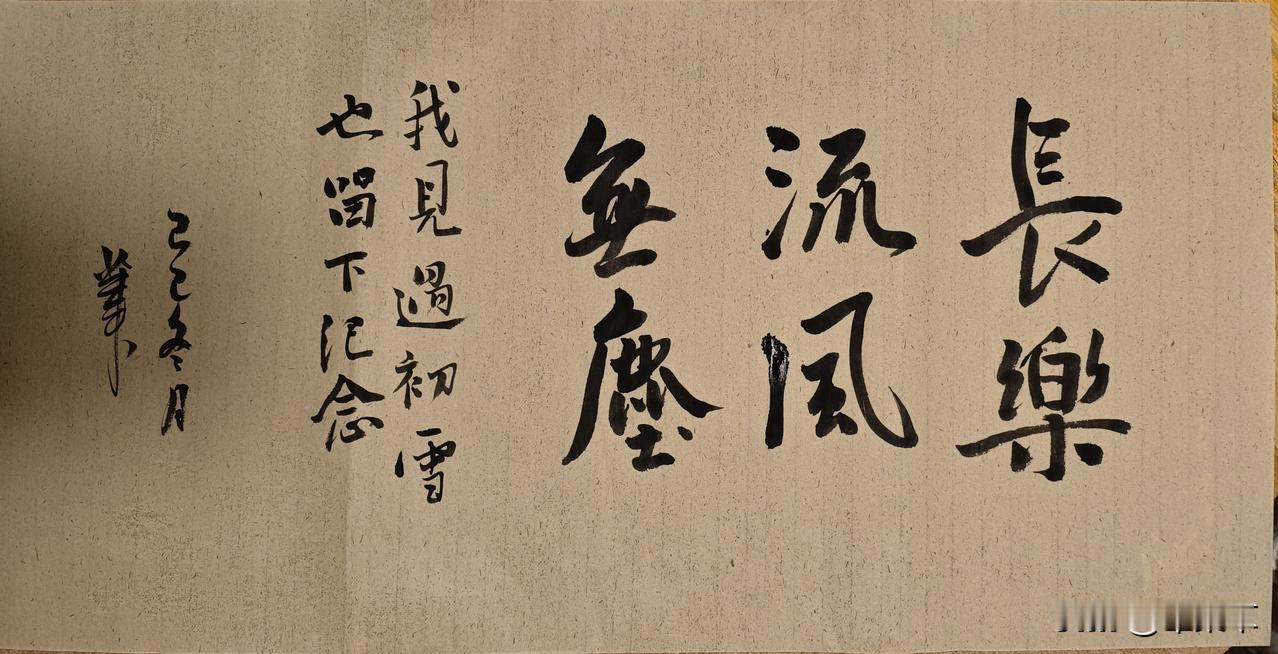 長樂
流風
無塵
我見過初雪
也留下記念
己巳冬月